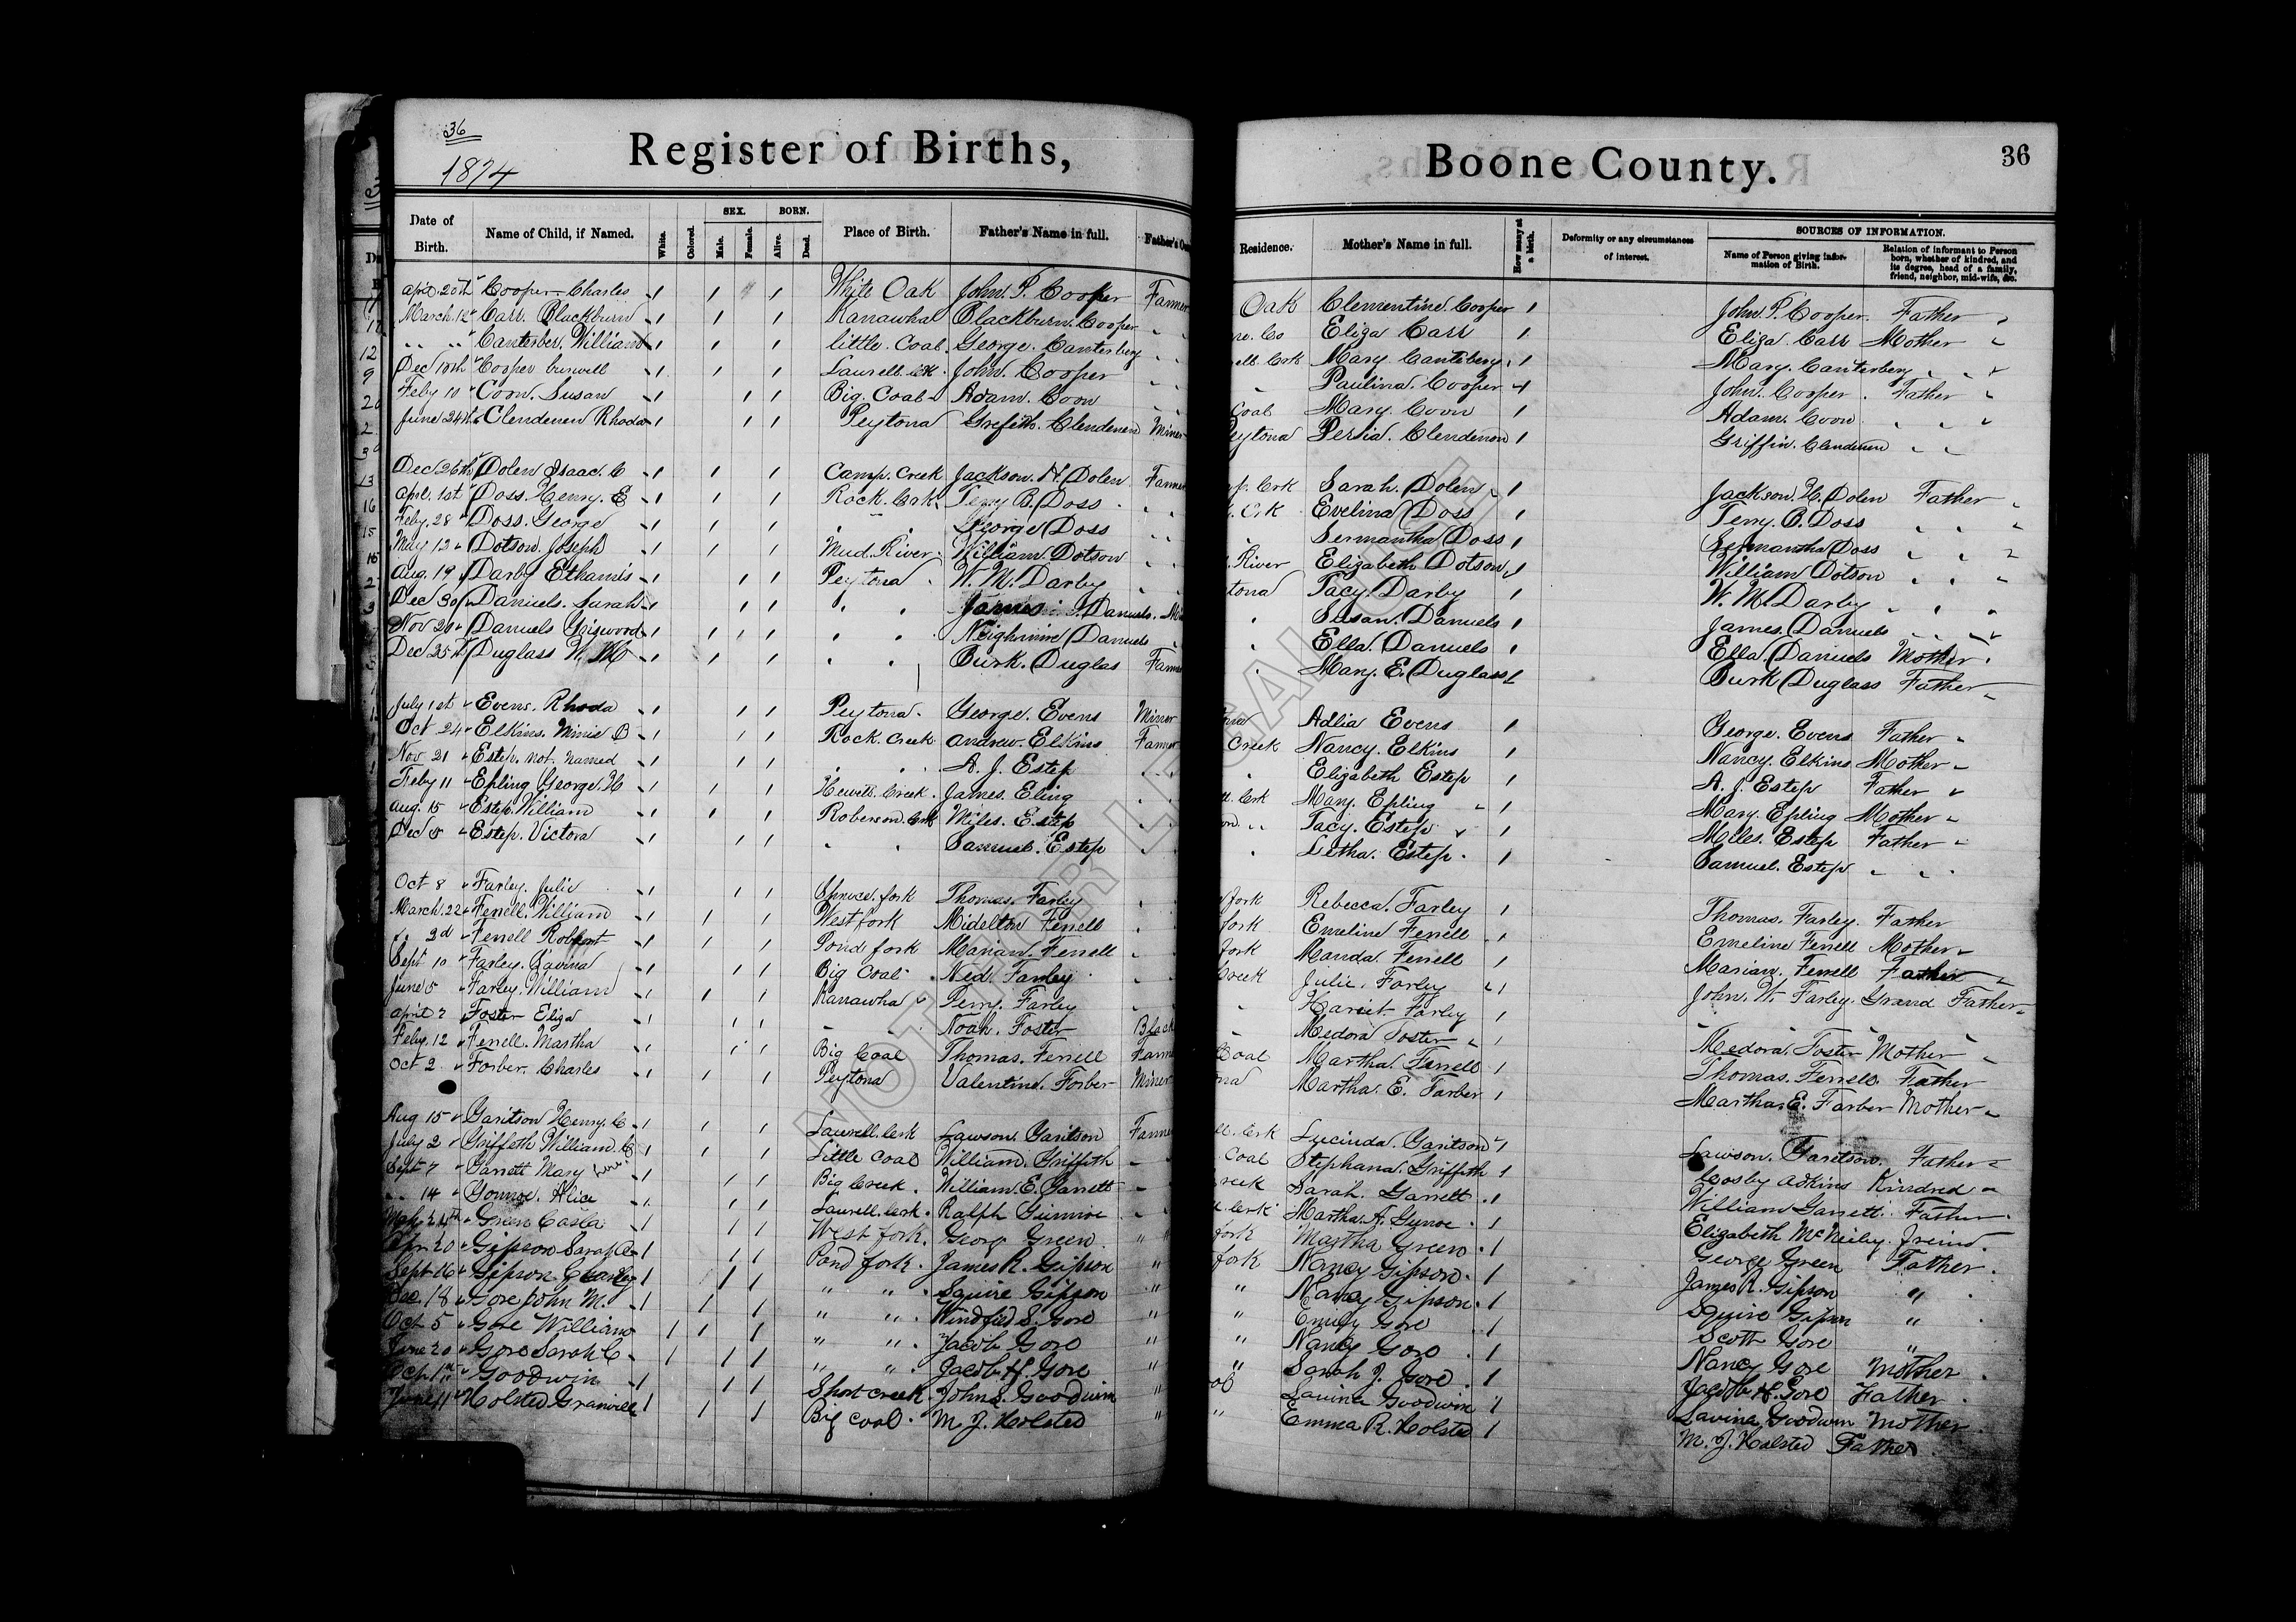 36
1874
Register of Births,
Boone County.
36
Date of Birth. Name of Child, if Named. White. Colored. SEX. Male. Female. BORN. Alive. Dead. Place of Birth. Father's Name in full. Father's Residence. Mother's Name in full. How many at a birth. Deformity or any circumstances of interest. SOURCES OF INFORMATION. Name of Person giving information of Birth. Relation of informant to Person born, whether of kindred, and its degree, head of a family, friend, neighbor, mid-wife, &c.
April 20th " Cooper Charles 1 1 1 White Oak John. P. Cooper Farmer Oak Clementine Cooper 1 John P. Cooper. Father "
March. 12 " Carr. Blackburn 1 1 1 Kanawha Blackburn. Cooper " Co Eliza Carr 1 Eliza. Carr Mother "
" " " Canterber. William 1 1 1 little. Coal. George. Canterberg " " Mary. Canteberg. 1 Mary. Canterberg " "
Dec 18th " Cooper 1 1 1 Laurell. Crk. John. Cooper " " " Paulina. Cooper 1 John. Cooper. Father "
Feby 10 " Coon. Susan 1 1 1 Big. Coal Adam. Coon " " Coal Mary Coon 1 Adam. Coon " "
June 24th " Clendenen Rhoda 1 1 1 Peytona Clendenen Miner Peytona Persia. Clendenon 1 Griffin. Clendenen " "
Dec 26th " Dolen Isaac. C 1 1 1 Camp. Creek Jackson. H. Dolen Farmer Crk Sarah. Dolen 1 Jackson. H. Dolen Father "
Apri. 1st " Doss. Henry. E 1 1 1 Rock. Crk. Terry B. Doss " " Crk Evelina Doss 1 Terry. B. Doss " "
Feby. 28 " Doss. George 1 1 1 " " George Doss " " " Sermantha Doss 1 Sermantha Doss " "
May 12 " Dotson. Joseph 1 1 1 Mud. River. William Dotson " " River Elizabeth Dotson 1 William Dotson " "
Aug. 19 " Darby Ethamis 1 1 1 Peytona. W. M. Darby " " tona Tacy. Darby 1 W. M. Darby " "
Dec 30 " Daniels. Sarah 1 1 1 " " James Daniels. " Susan. Daniels 1 James. Daniels " "
Nov 20 " Daniels Griswood 1 1 1 " " Neighmire Daniels " " Ella. Daniels 1 Ella. Daniels Mother.
Dec 25th Duglass W. M 1 1 1 " " Burk. Duglas Farmer " Mary. E. Duglass 1 Burk Duglass Father
July 1st " Evens. Rhoda 1 1 1 Peytona. George. Evens Miner Adlia Evens 1 George. Evens Father "
Oct 24 " Elkins. Minie B 1 1 1 Rock. Creek Andrew. Elkins Farmer Creek Nancy. Elkins 1 Nancy. Elkins Mother "
Nov. 21 " Estep. not. Named 1 1 1 " " A. J. Estep " " Elizabeth Estep 1 A. J. Estep Father "
Feby 11 " Epling George. H 1 1 1 Hewitt. Creek. James. Eling " " Crk Mary. Epling 1 Mary. Epling Mother "
Aug. 15 " Estep. William 1 1 1 Roberson. Crk Miles. Estep " " Tacy. Estep 1 Miles. Estep Father "
Dec 8 " Estep. Victora 1 1 1 " " Samuel. Estep " " Letha. Estep. 1 Samuel. Estep " "
Oct 8 " Farley. Julie 1 1 1 Spruce. fork Thomas. Farley " fork Rebecca. Farley 1 Thomas. Farley. Father
March. 22 " Ferrell. William 1 1 1 West fork Midelton Ferrell " fork Emeline Ferrell 1 Emeline Ferrell Mother "
" 2d " Ferrell Robert 1 1 1 Pond fork Marian. Ferrell " fork Manda. Ferrell 1 Marian. Ferrell Father
Sept 10 " Farley. Lavina 1 1 1 Big Coal Ned. Farley " Creek Julie. Farley 1 John. W. Farley. Grand Father
June 5 " Farley. William 1 1 1 Kanawha " Perry. Farley " " Hariet Farley 1 " "
April 2 Foster Eliza 1 1 1 " " Noah. Foster Black " Medora Foster 1 Medora. Foster Mother
Feby. 12 " Ferrell. Martha 1 1 1 Big Coal Thomas. Ferrell Farmer Coal Martha. Ferrell 1 Thomas. Ferrell. Father
Oct 2 " Forber. Charles 1 1 1 Peytona Valentine. Forber Miner Martha. E. Farber 1 Martha. E. Farber Mother
Aug 15 " Garitson Henry. C 1 1 1 Laurell. Crk Lawson. Garitson Farmer Crk Lucinda. Garitson 1 Lawson. Garitson. Father
July 2 " Griffeth William. C 1 1 1 Little Coal William. Griffith " Coal Stephana. Griffeth 1 Cosby Adkins Kindred
Sept 7 " Garrett Mary 1 1 1 Big Creek. William. E. Garrett " reek Sarah. Garrett. 1 William Garrett. Father
" 14 " Alice 1 1 1 Laurell. Crk. Ralph " Crk Martha. A. 1 Elizabeth McNeiley. Freind.
24th " Green Casla 1 1 1 West fork. Georg Green " " fork Martha Green. 1 George Green Father.
Apr. 20 " Gipson Sarah 1 1 1 Pond fork. James R. Gipson " fork Nancy Gipson. 1 James R. Gipson "
Sept 16 " Gipson Charley 1 1 1 " " Squire Gipson " " Nancy Gipson. 1 Squire Gipson "
Dec. 18 " Gore John M. 1 1 1 " " Windfied S. Gore " " Emily Gore 1 Scott Gore "
Oct 5 " Gore William 1 1 1 " " Jacob Gore " " Nancy Gore. 1 Nancy Gore Mother.
June 20 " Gore Sarah C 1 1 1 " " Jacob H. Gore " " Sarah J. Gore. 1 Jacob H. Gore Father.
Oct 1st " Goodwin 1 1 1 Short creek. John S. Goodwin " Lavina Goodwin 1 Lavina Goodwin Mother
June 11 " Holsted Granvill 1 1 1 Big Coal. M. J. Holsted " " Emma R. Holsted 1 M. J. Holsted Father.
NOT FOR LEGAL USE